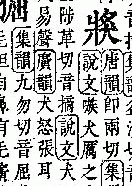 獎
唐韻即兩切集
說文嗾犬厲之
陟革切音摘說文犬
易聲廣韻犬怒張耳
集韻九勿切音屈